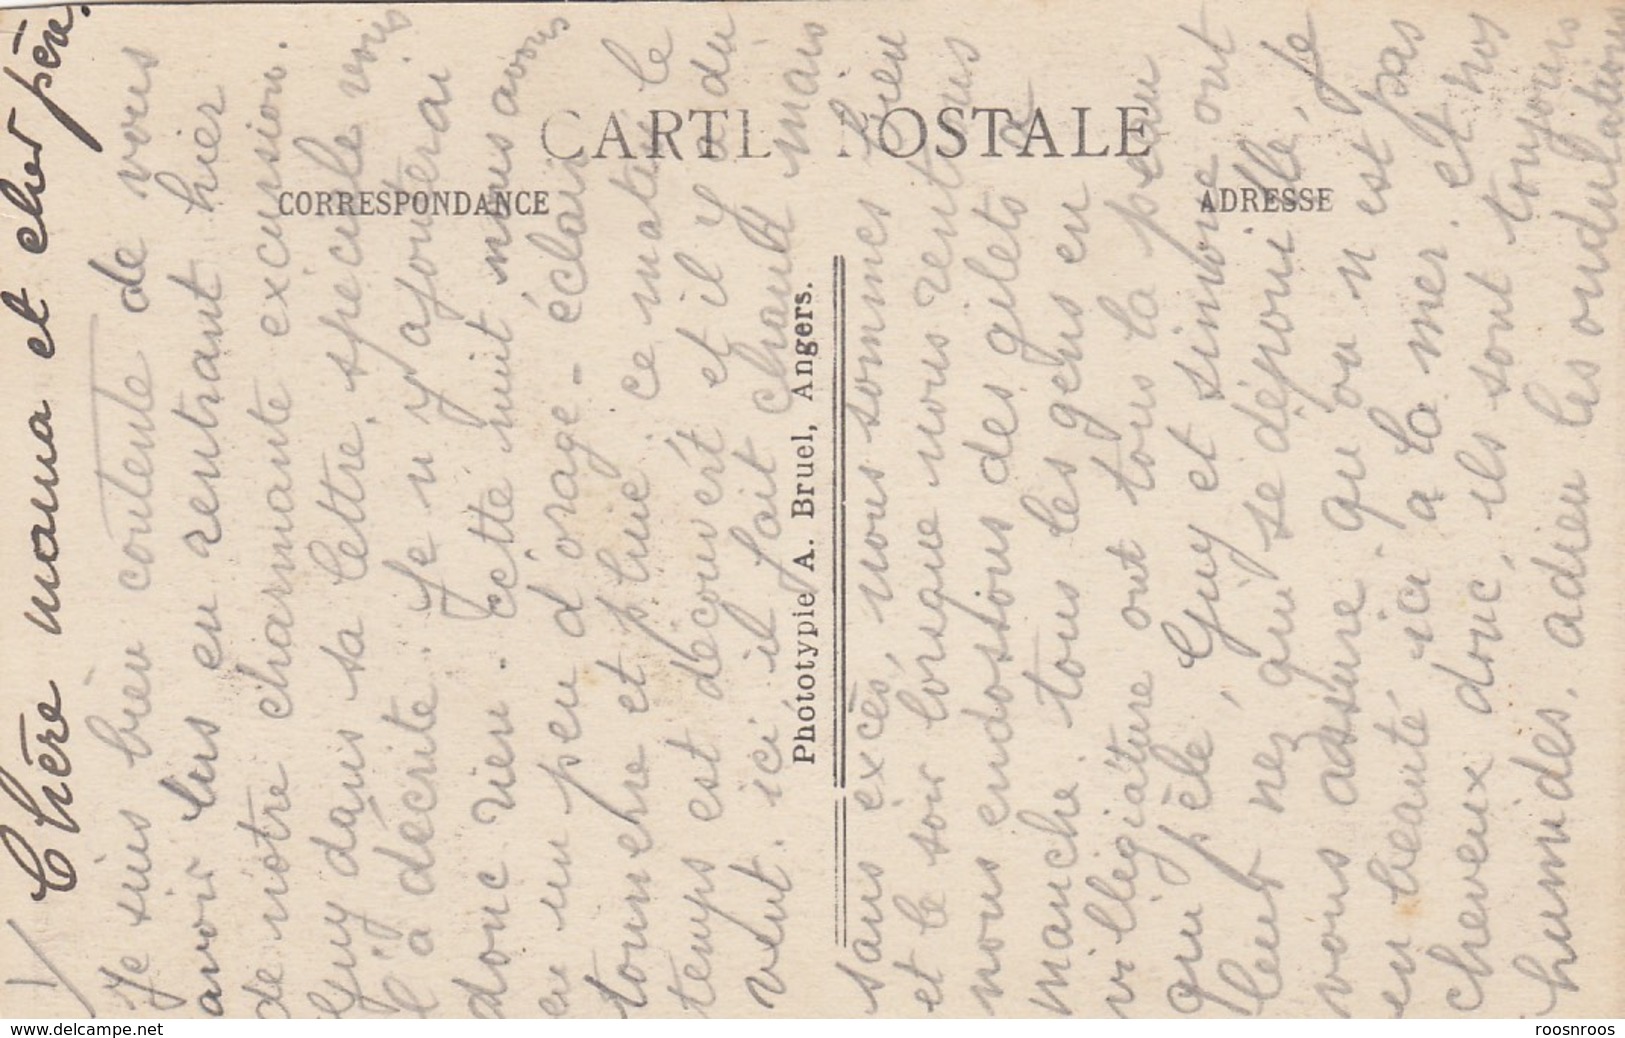 CARTE POSTALE
CORRESPONDANCE
ADRESSE
Photótypie A. Bruel, Angers.
Chère mama et cher père.
Je suis bien contente de vous
avoir lus en rentrant hier
de notre charmante excursion.
Guy dans sa lettre, spéciale vous
l'a décrite. Je n'y ajouterai
donc rien. Cette nuit nous avons
eu un peu d'orage - éclairs
tonnerre et pluie. Ce matin le
temps est découvert et il y a du
vent. ici il fait chaud mais
sans excès, nous sommes bien
et le soir lorsque nous rentrons
nous endossons des gilets à
manche. tous les gens en
villégiature ont tous la peau
qui pèle, Guy et Simone ont
leur nez qui se dépouille, Je
vous assure qu'on n'est pas
en beauté ici à la mer. et nos
cheveux donc, ils sont toujours
humides, adieu les ondulations
delcampe.net
roosnroos